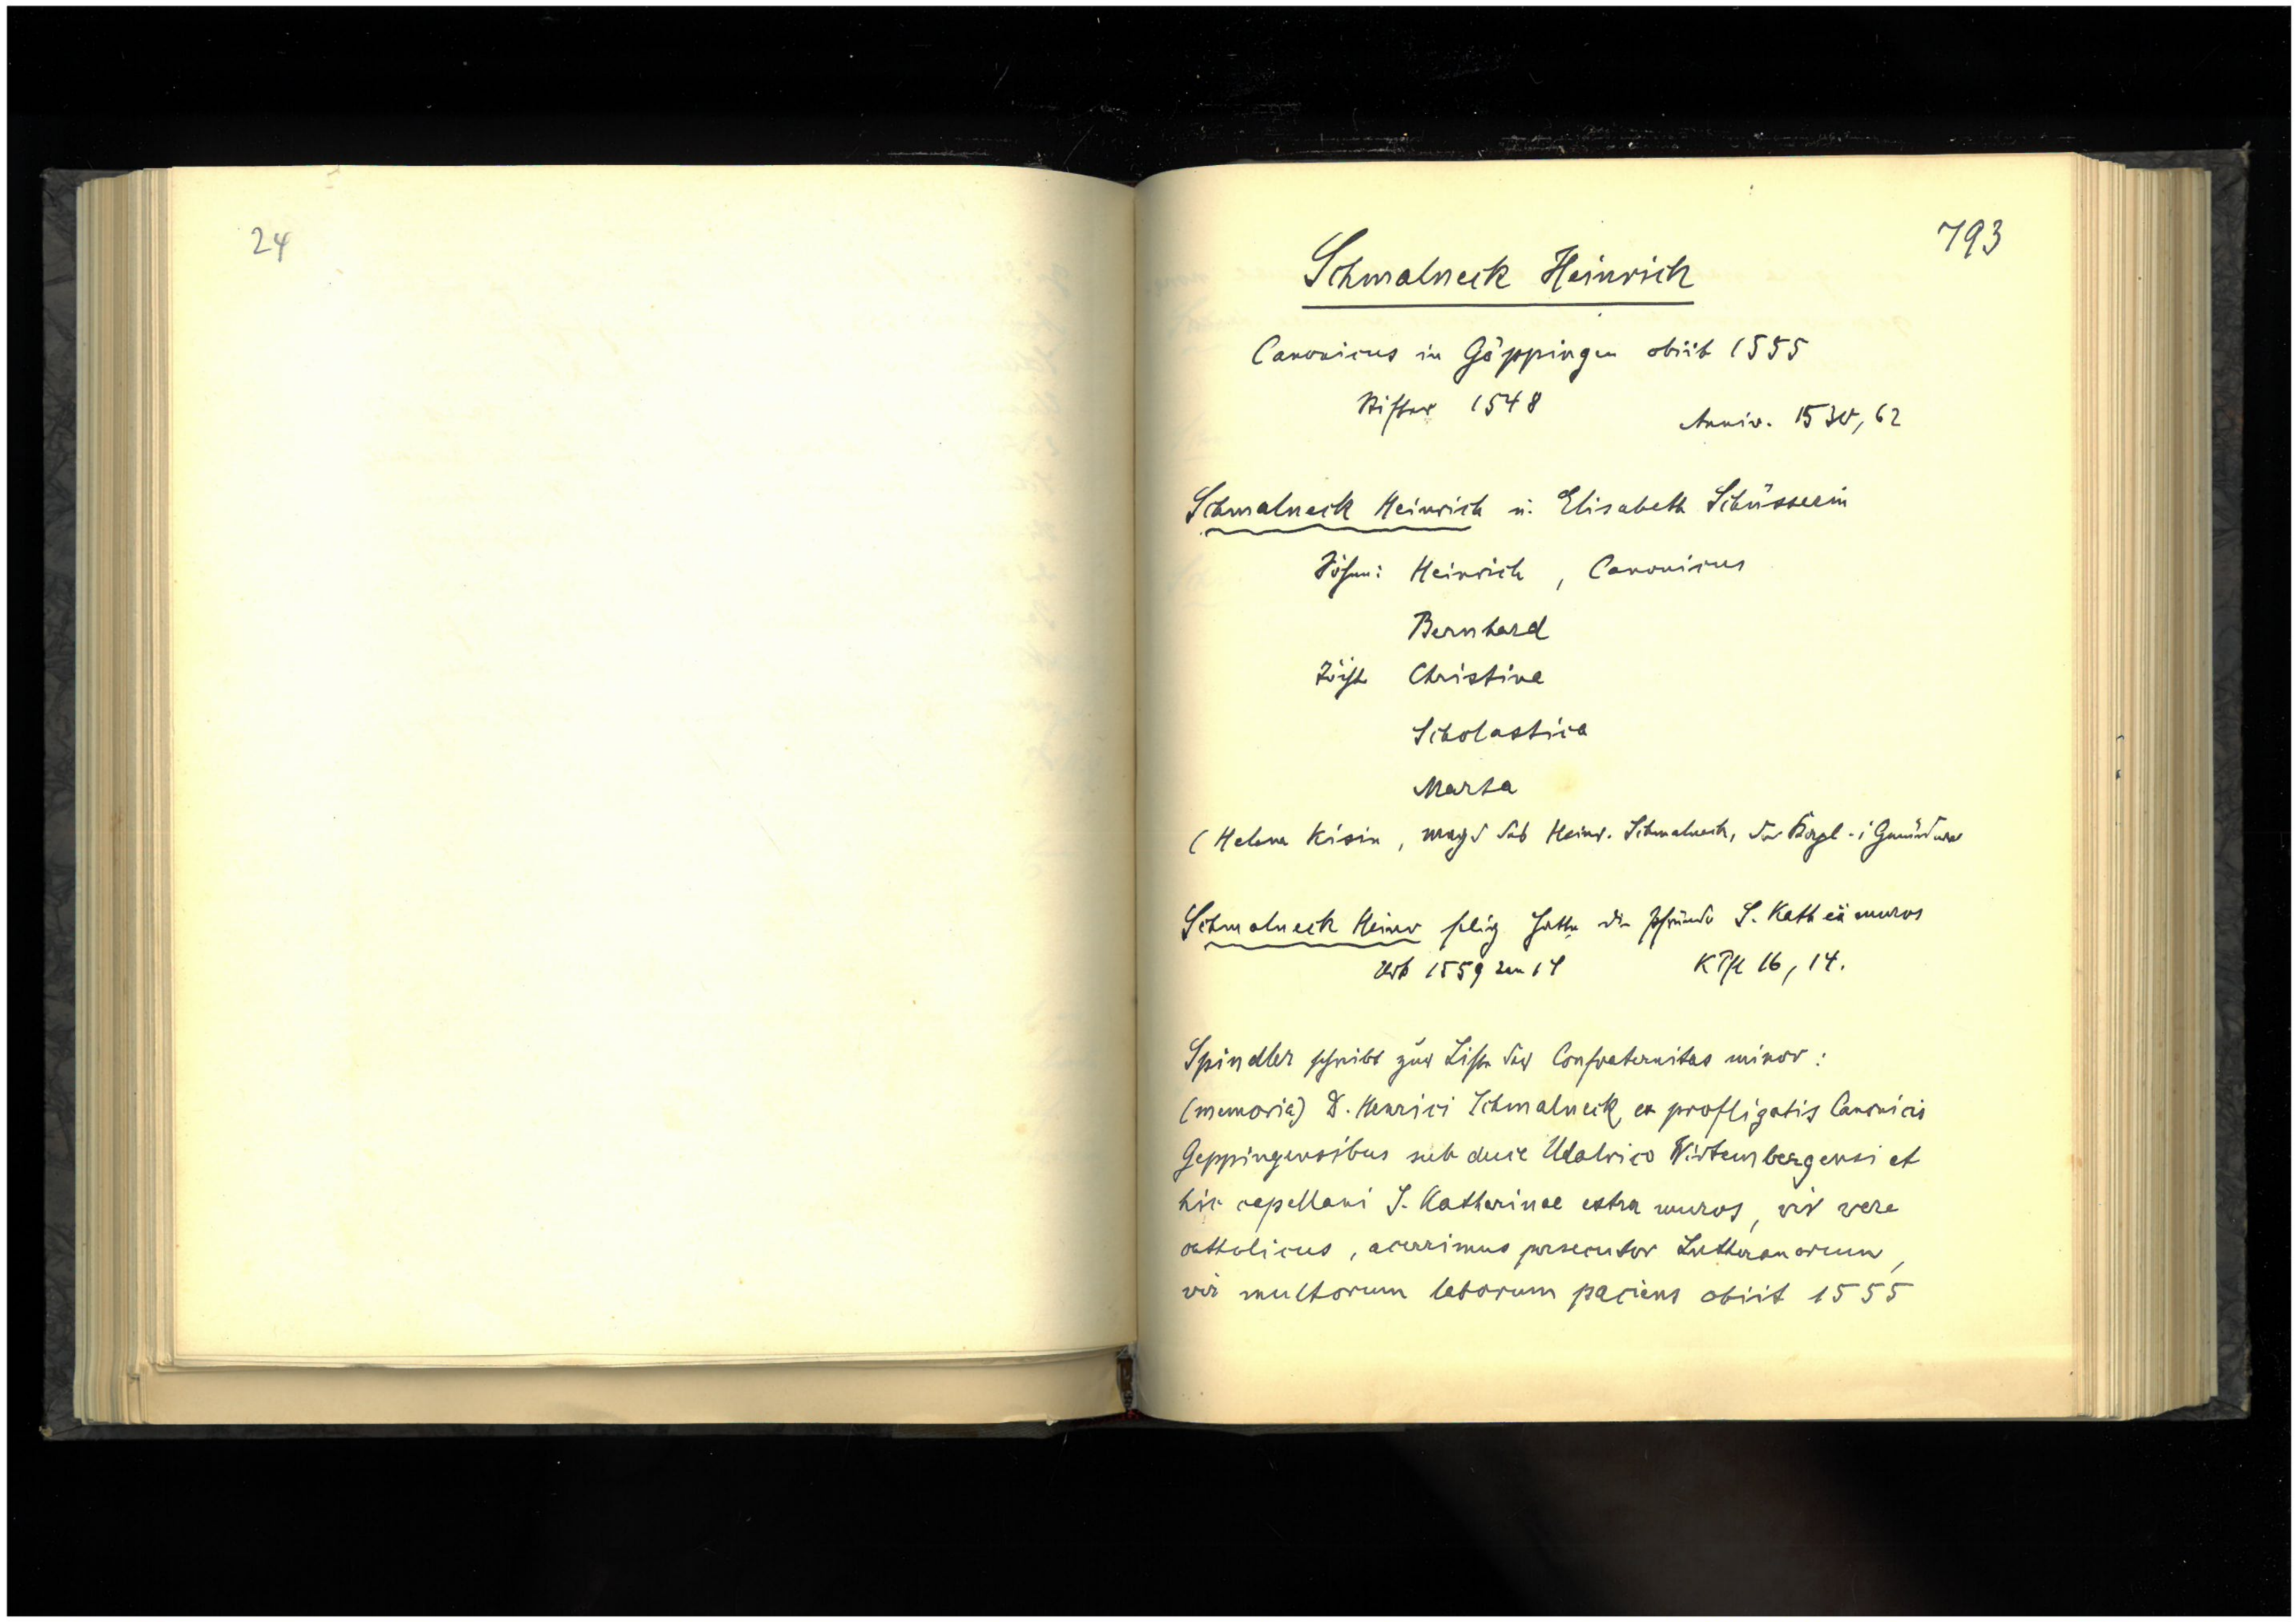 24
793
Schmalneck Heinrich
Canonicus in Göppingen obiit 1555
Stifter 1548
Anniv. 1530, 62
Schmalneck Heinrich u. Elisabeth Schüsserin
Söhne: Heinrich, Canonicus
Bernhard
Töcht Christina
Scholastica
Marta
(Helena Kisin, magd des Heinr. Schmalneck, der i Gmünd war
Schmalneck Heinr selig hatte die Pfründe S. Kath exa muros
Urb 1559 14
K Pfl 16, 14.
Spindler schreibt zur Liste der Confraternitas minor:
(memoria) D. Henrici Schmalneck, ex profligatis Canonicis
Geppingensibus sub duce Udalrico Wirtembergensi et
hic capellani S. Katharinae extra muros, vir vere
catholicus, acerrimus persecutor Lutheranorum,
vir multorum laborum paciens obiit 1555